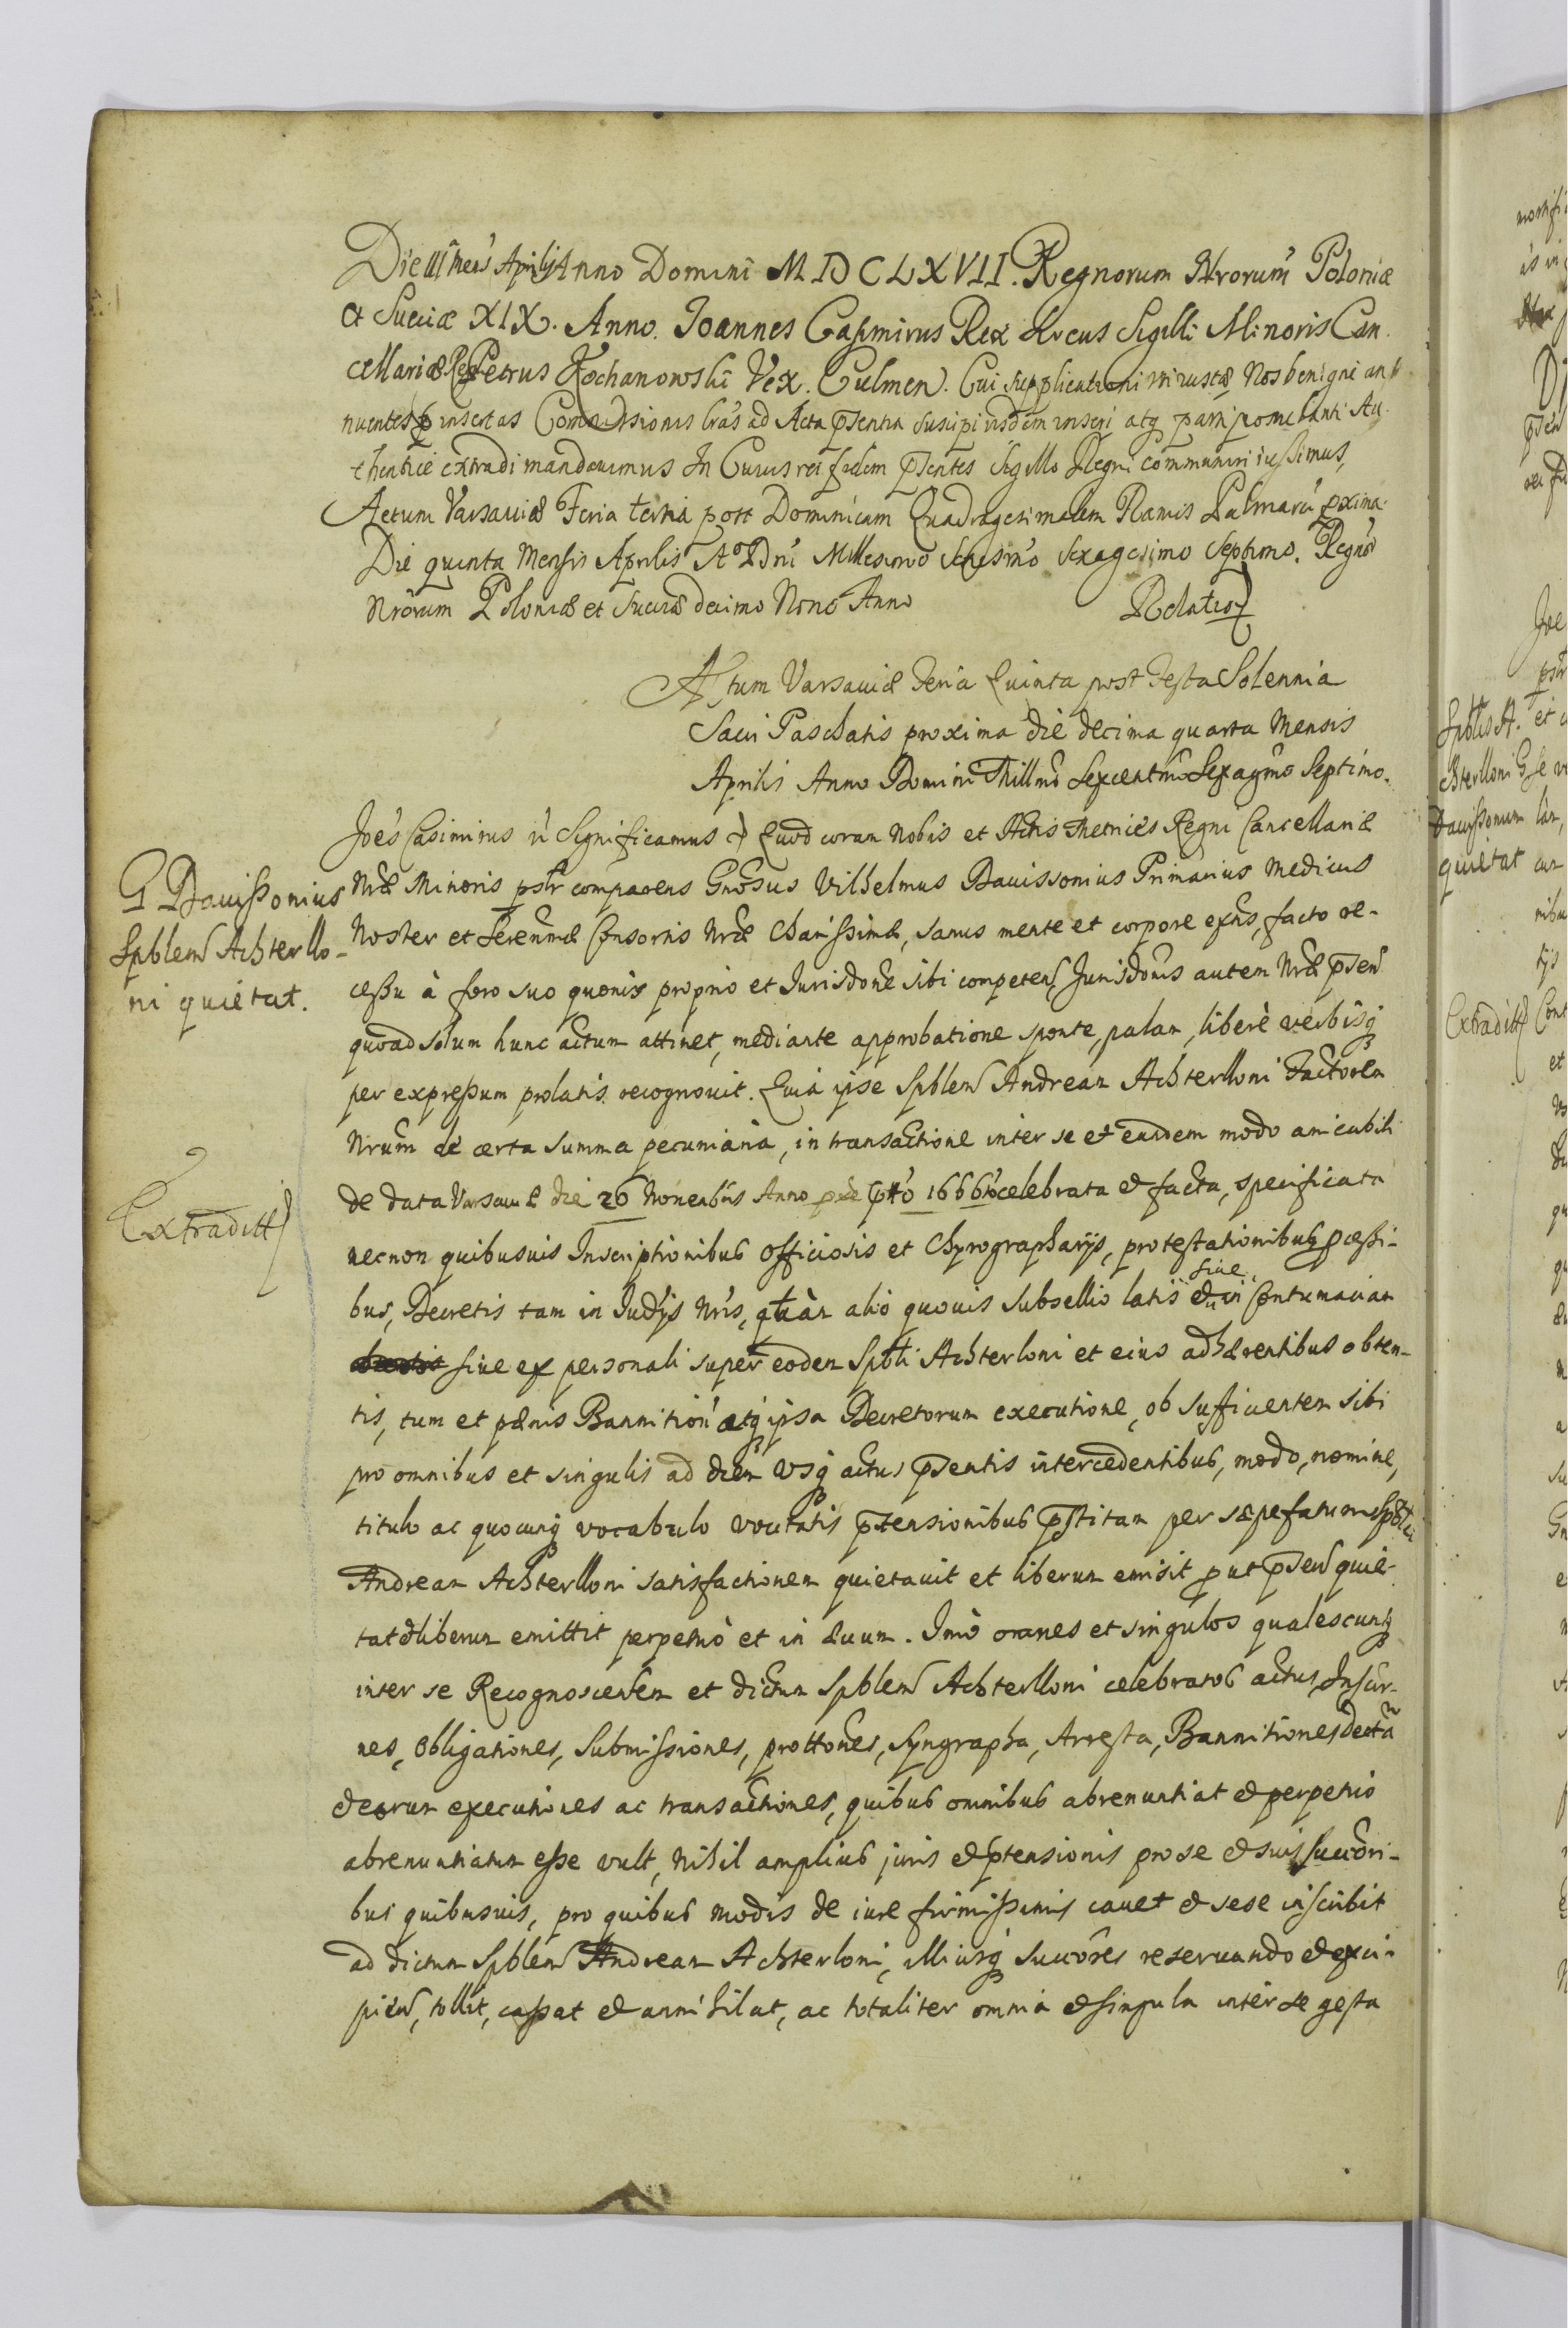 Die III mens Aprilis Anno Domini MDCLXVII. Regnorum Nrorum Poloniæ
et Sueciæ XIX. Anno. Joannes Casimirus Rex Locus Sigilli Minoris Can
cellariæ Petrus Kochanowski Vex. Culmen. Cui supplicationi Nos benigne an
nuentes insertas Commissionis lras ad Acta psentia suscipi iisdem inseri atq parti postulanti Au
thentice extradi mandavimus In Cuius rei fidem psentes sigillo Regni communiri iussimus,
Actum Varsaviæ Feria tertia post Dominicam Quadragesimalem Ramis Palmarū pxima
Die quinta Mensis Aprilis Aº Dni Millesimo Sexcesmo sexagesimo septimo. Regnor
Nrorum Poloniæ et Sueciæ decimo Nono Anno Relatio
Actum Varsaviæ Feria Quinta post Festa Solennia
Sacri Paschatis proxima die decima quarta Mensis
Aprilis Anno Domini Millmo Sexcentmo Sexagmo Septimo.
Joes Casimirus Significamus Quod coram Nobis et Actis Metrices Regni Cancellariæ
Nræ Minoris pslr comparens Gnosus Vilhelmus Davissonius Primarius Medicus
Noster et Serenmæ Consortis Nræ Charissimæ, sanus mente et corpore exns, facto re-
cessu à foro suo quovis proprio et Jurisdone sibi competen Jurisdonis autem Nræ psen
quoad solum hunc actum attinet, mediante approbatione sponte, palam, liberè verbisq
per expressum prolatis recognovit. Quia ipse Spblem Andream Achterlloni Factorem
Nrum de certa summa pecuniaria, in transactione inter se et eundem modo amicabili
de data Varsaviæ die 26 Novembris Anno 1666to celebrata et facta, specificata
necnon quibusvis Inscriptionibus officiosis et Chyrographarijs, protestationibus, pcessi-
bus, Decretis tam in Judijs Nris, quàm alio quovis subsellio latis et sive in Contumaciam
sive ex personali super eodem Spbli Achterloni et eius adhærentibus obten-
tis, tum et pœnis Bannition atq ipsa Decretorum executione, ob sufficientem sibi
pro omnibus et singulis ad diem usq actus psentis intercedentibus, modo, nomine,
titulo ac quocunq vocabulo vocitatis ptensionibus pstitam per sæpefatum Spblem
Andream Achterlloni satisfactionem quietavit et liberum emisit put psen quie-
tat et liberum emittit perpetuò et in ævum. Imò omnes et singulos qualescunq
inter se Recognoscentem et dictum Spblem Achterlloni celebratos actus, Inscir-
nes, Obligationes, Submissiones, prottones, Syngrapha, Arresta, Bannitiones decta
et eorum executiones ac transactiones, quibus omnibus abrenuntiat et perpetuo
abrenuntiatum esse vult, nihil amplius juris et ptensionis pro se et suis succori-
bus quibusvis, pro quibus modis de iure firmissimis cavet et sese inscribit
ad dictum Spblem Andream Achterloni, illiusq succores reservando et exci-
pien, tollit, cassat et annihilat, ac totaliter omnia et singula inter se gesta
G Davissonius
Spblem Achterllo-
ni quietat.
Extraditt
Spblis A.
chterlloni G
Davissonium
quietat
Extraditt